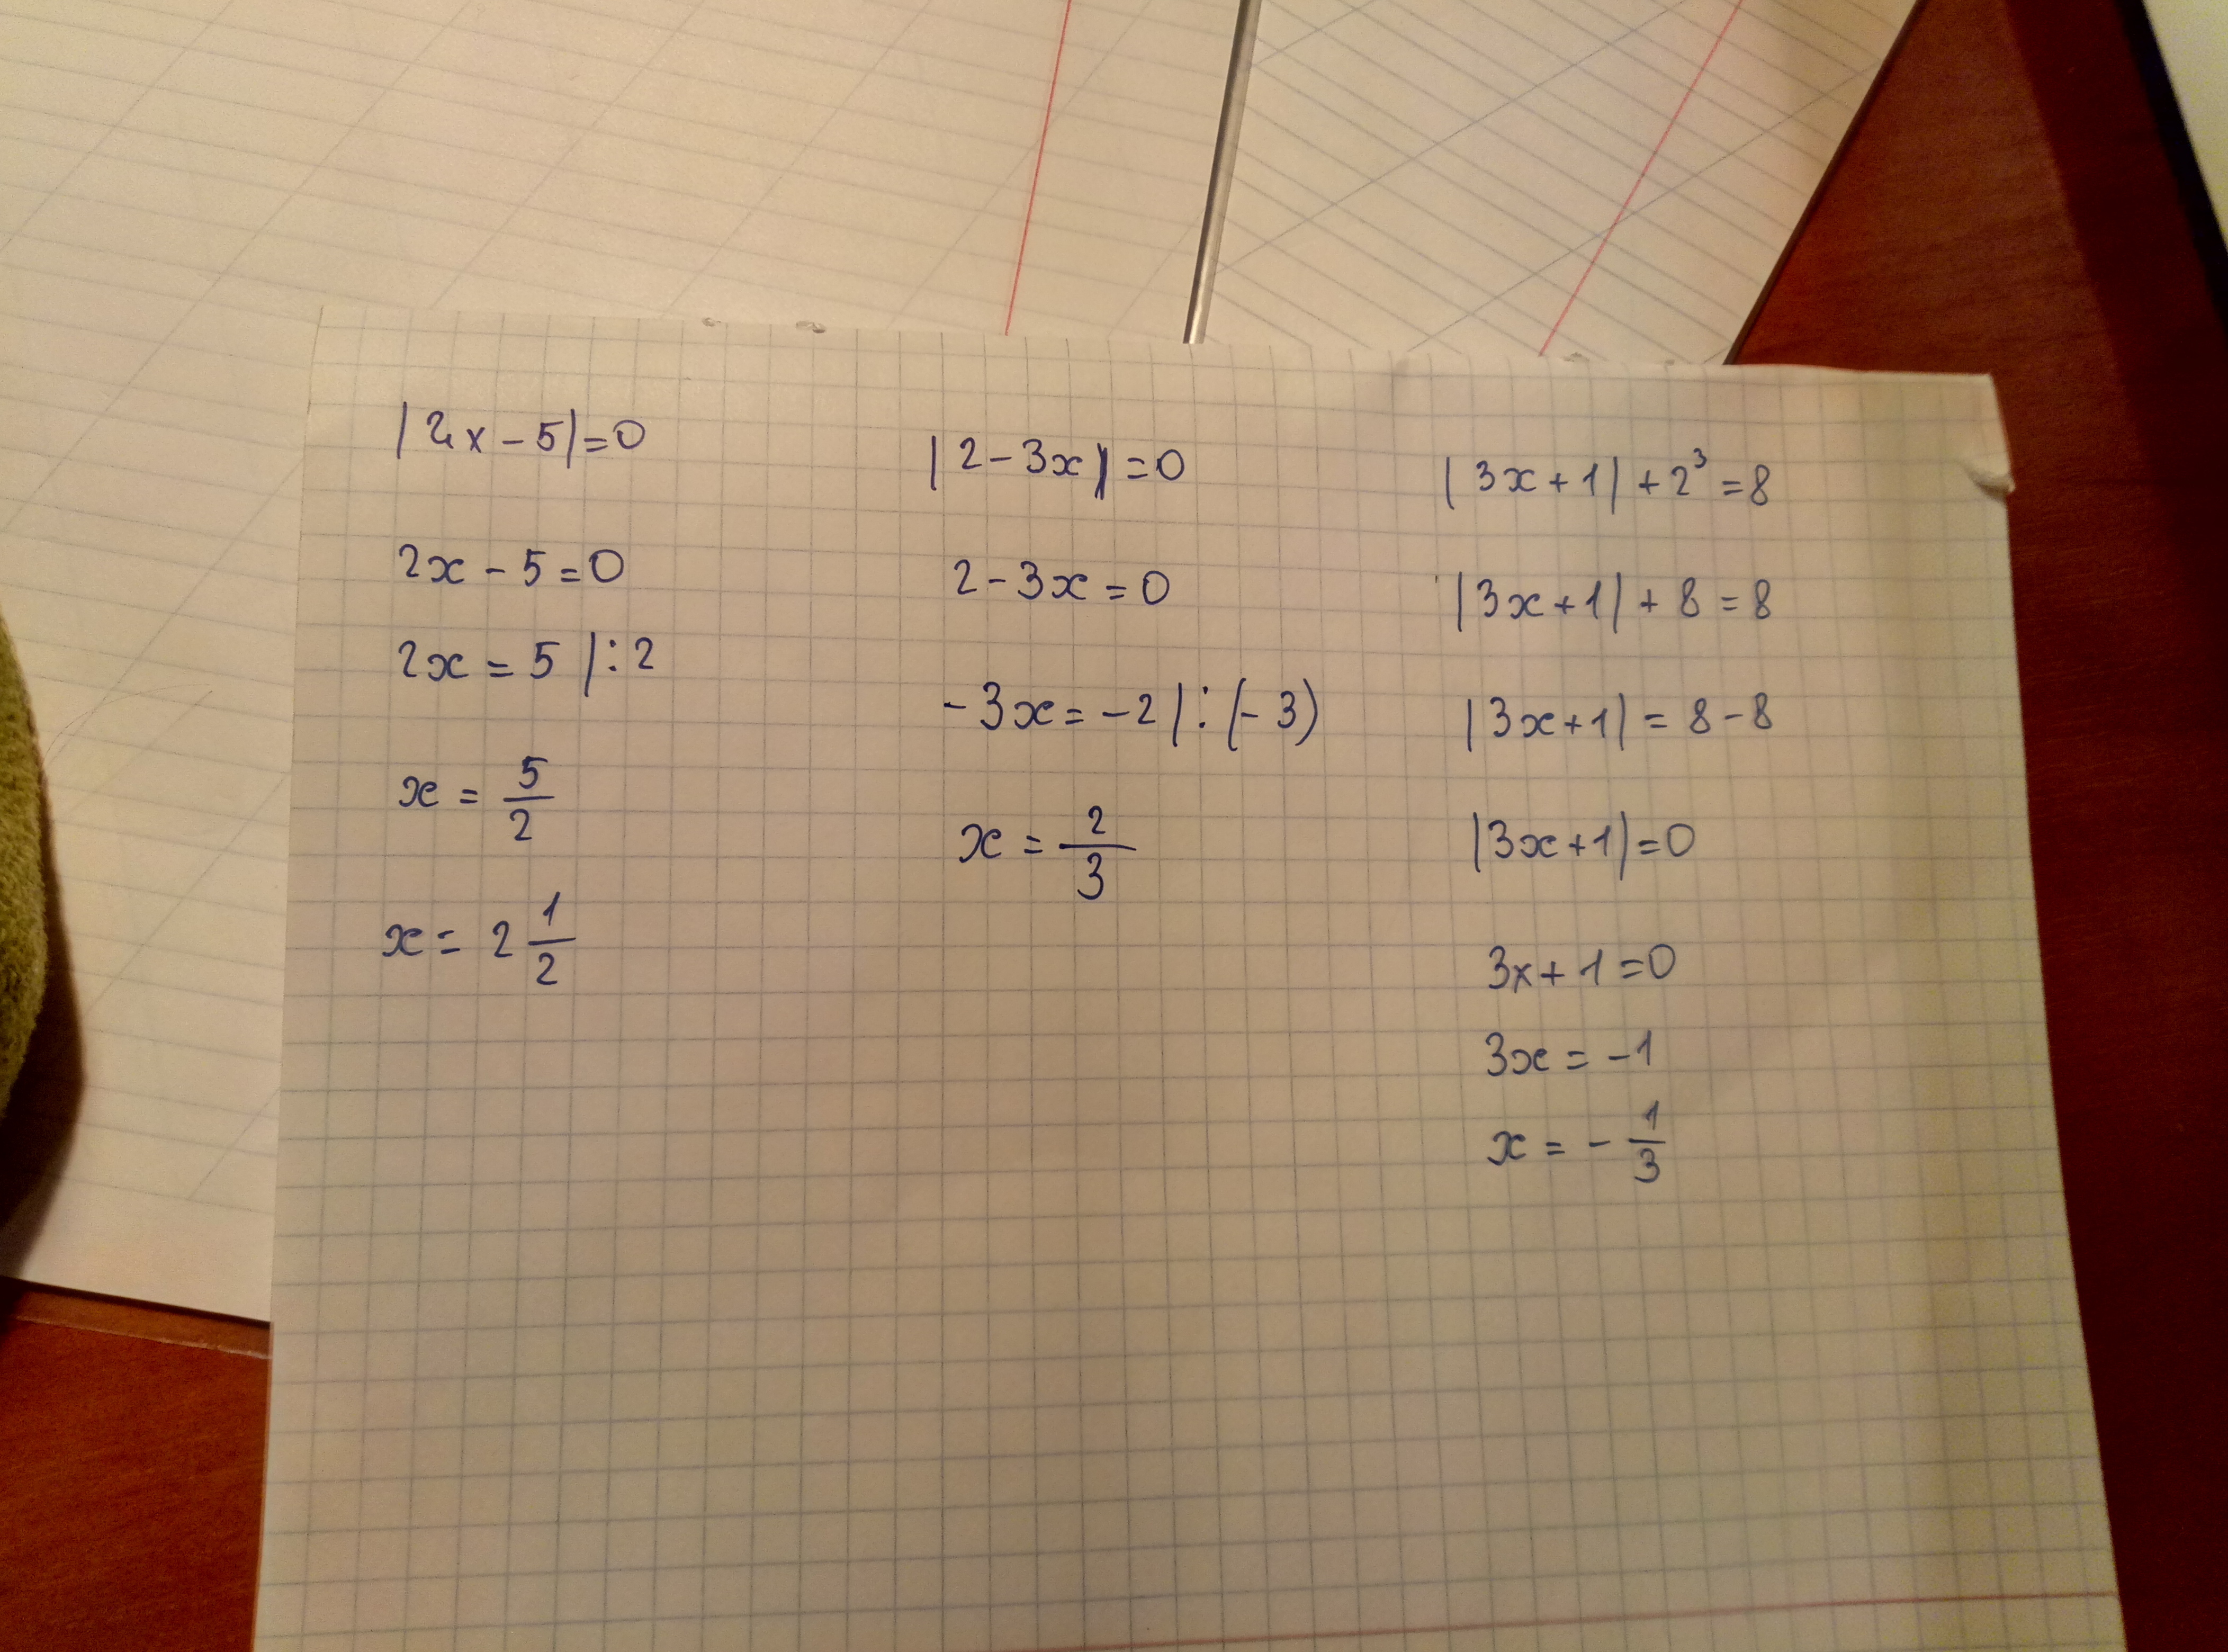 |2x - 5| = 0
2x - 5 = 0
2x = 5 |:2
x = 5/2
x = 2 1/2
|2 - 3x| = 0
2 - 3x = 0
-3x = -2 |:(-3)
x = 2/3
|3x + 1| + 2³ = 8
|3x + 1| + 8 = 8
|3x + 1| = 8 - 8
|3x + 1| = 0
3x + 1 = 0
3x = -1
x = - 1/3